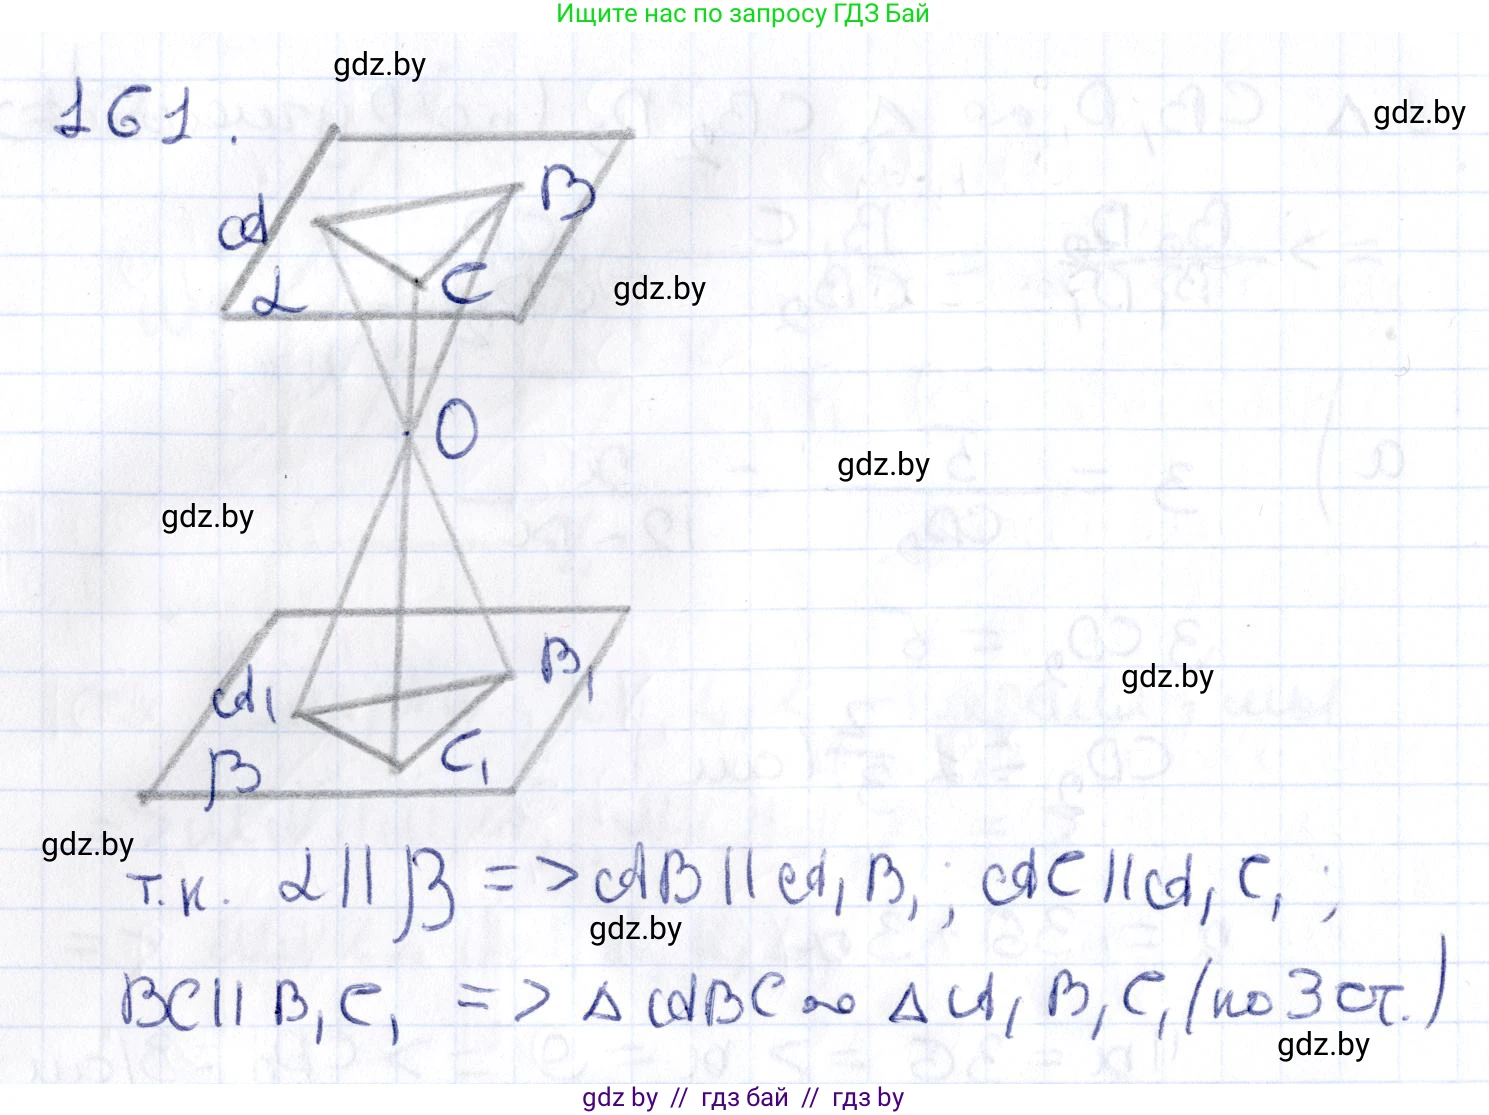 Ищите нас по запросу ГДЗ Бай
gdz.by
161.
gdz.by
B
A
C
α
gdz.by
O
gdz.by
gdz.by
B₁
gdz.by
A₁
C₁
β
gdz.by
т.к. α || β => AB || A₁B₁; AC || A₁C₁;
gdz.by
BC || B₁C₁ => Δ ABC ∞ Δ A₁B₁C₁ (по 3 ст.)
gdz.by
gdz by // гдз бай // гдз by